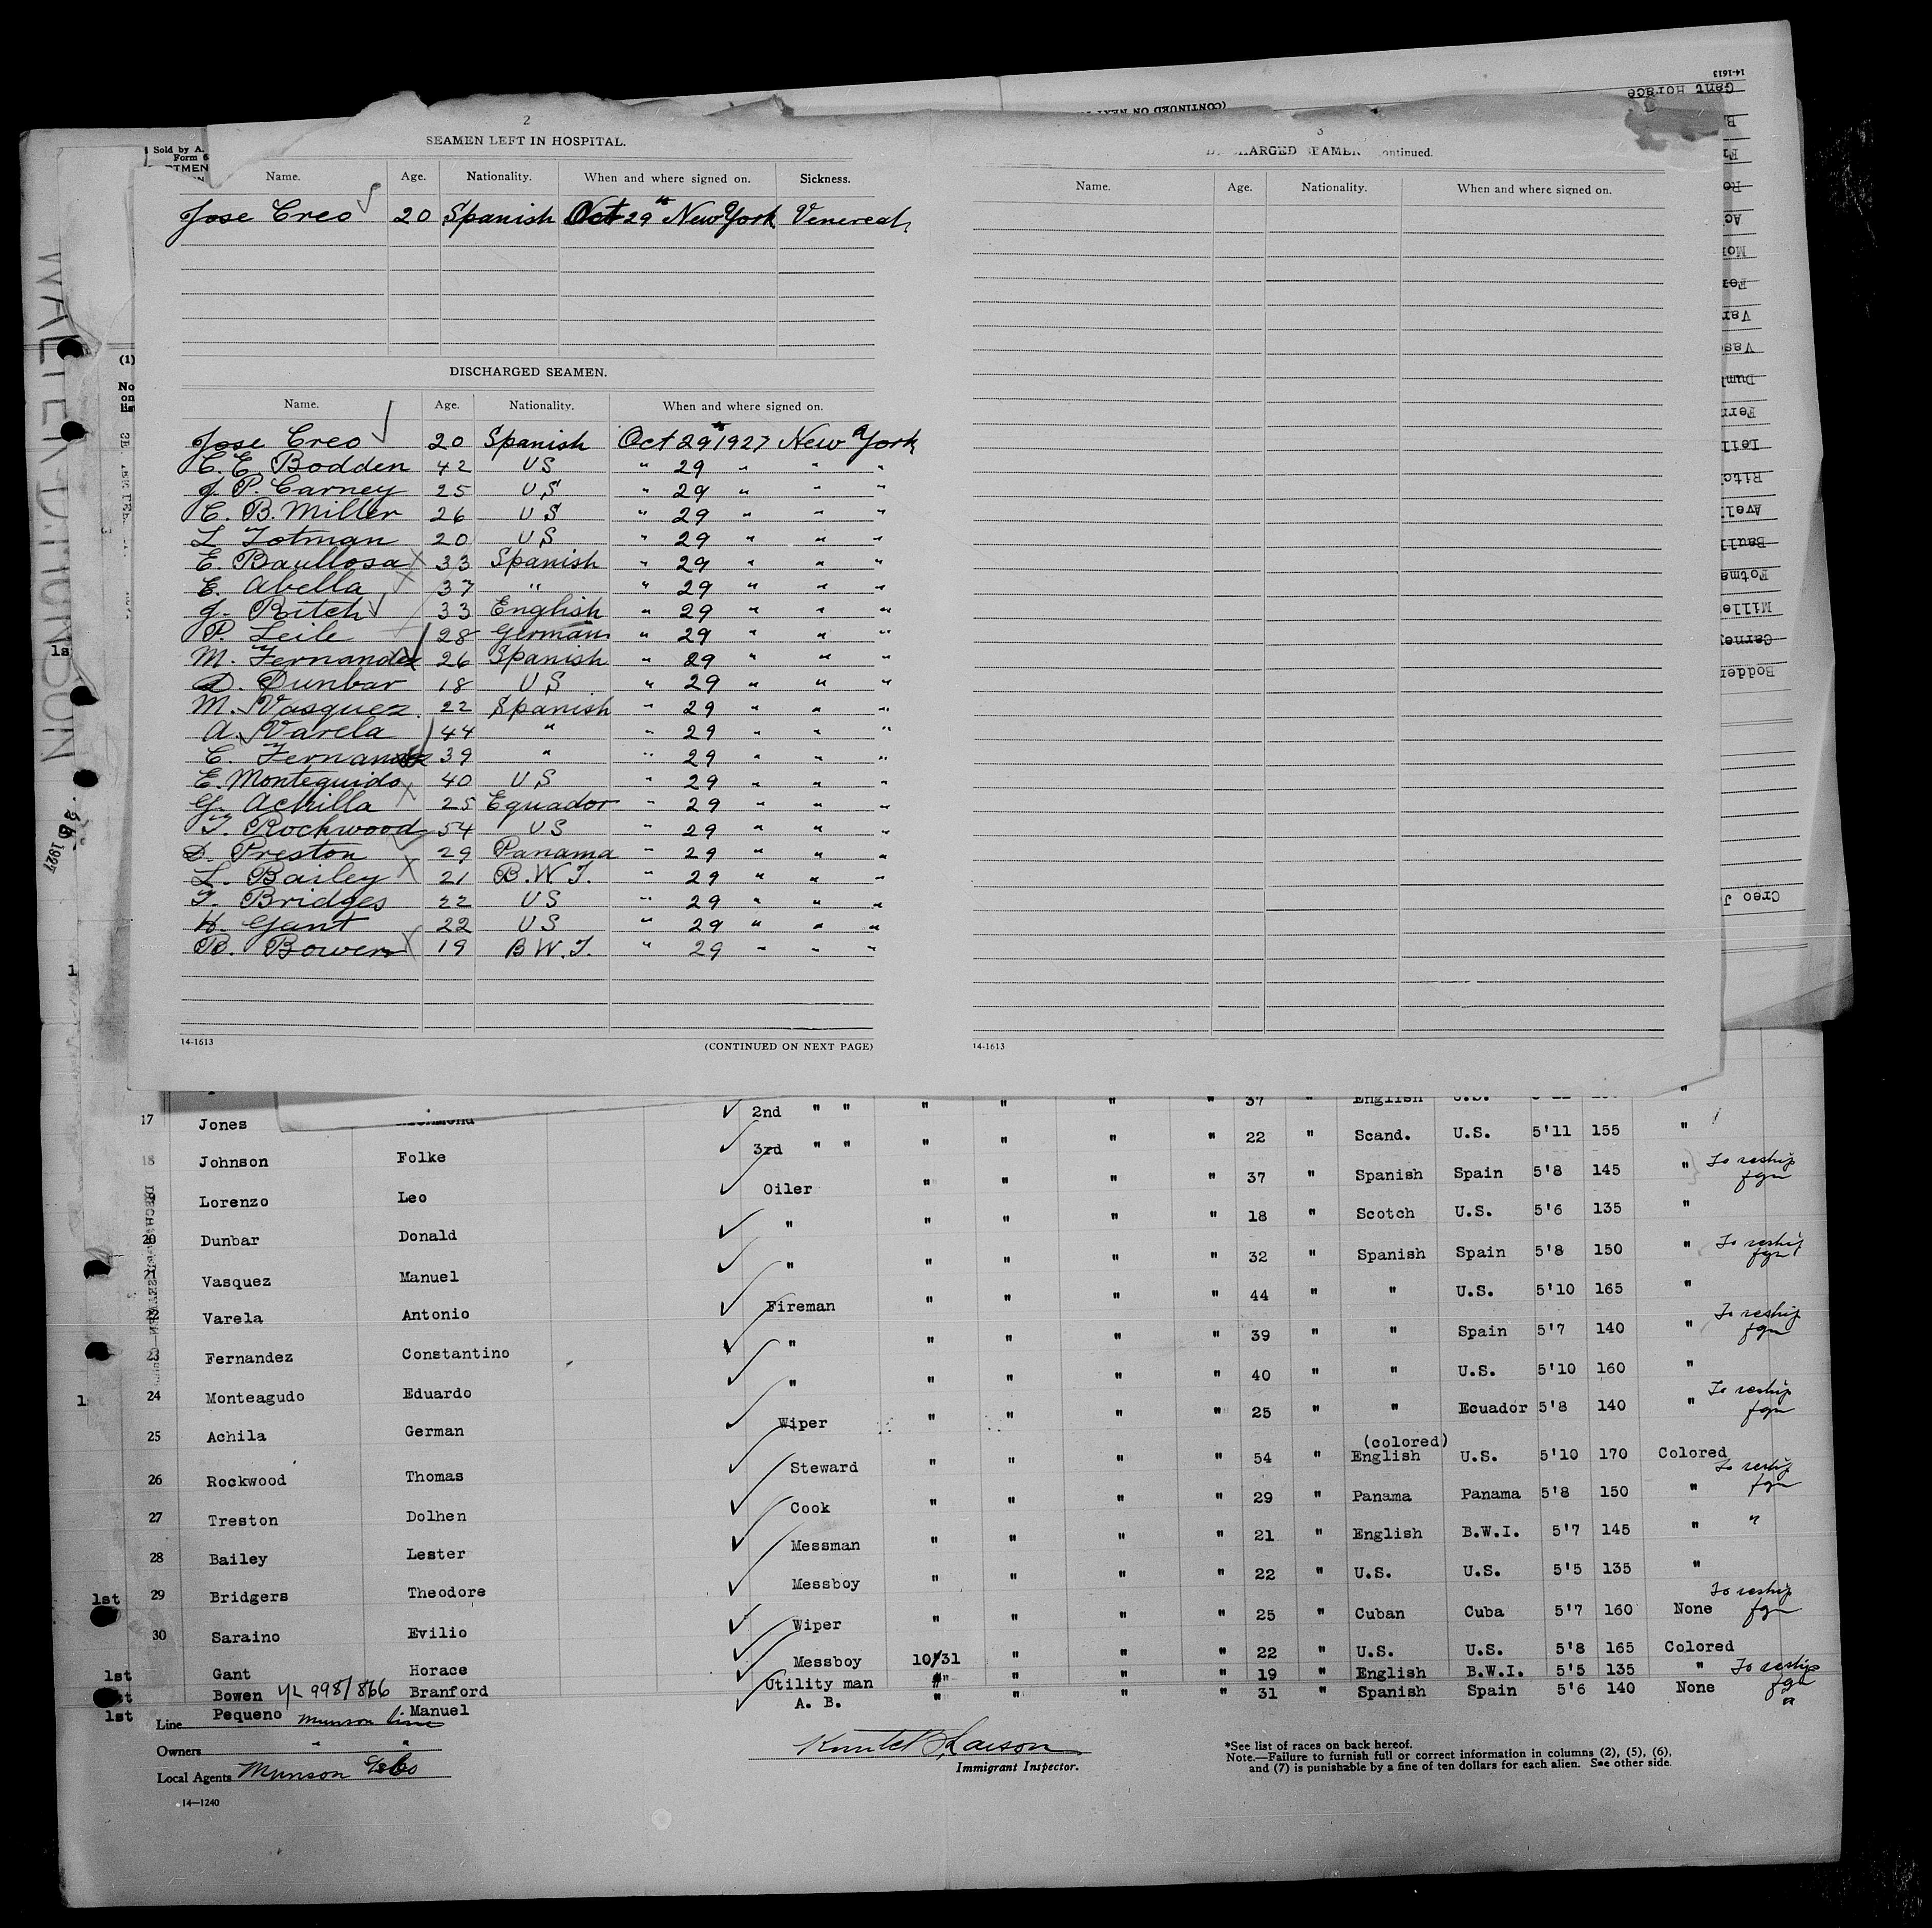 14-1613
Gant Horace
(CONTINUED ON NEXT
Sold by A.
Form 6
2
SEAMEN LEFT IN HOSPITAL.
Name. Age. Nationality. When and where signed on. Sickness.
Jose Creo 20 Spanish Oct 29th New York Venereal
DISCHARGED SEAMEN.
Name. Age. Nationality. When and where signed on.
Jose Creo 20 Spanish Oct 29th 1927 New York
C. E. Bodden 42 US " 29 " " "
J. P. Carney 25 US " 29 " " "
C. B. Miller 26 US " 29 " " "
L Totman 20 US " 29 " " "
E. Baullosa 33 Spanish " 29 " " "
E. Abella 37 " " 29 " " "
J. Ritch 33 English " 29 " " "
P. Leile 28 German " 29 " " "
M. Fernandez 26 Spanish " 29 " " "
D. Dunbar 18 US " 29 " " "
M. Vasquez 22 Spanish " 29 " " "
A. Varela 44 " " 29 " " "
C. Fernandez 39 " " 29 " " "
E. Monteguido 40 US " 29 " " "
G. Achilla 25 Equador " 29 " " "
T. Rockwood 54 US " 29 " " "
D. Preston 29 Panama " 29 " " "
L. Barley 21 B.W.I. " 29 " " "
T. Bridges 22 US " 29 " " "
H. Gant 22 US " 29 " " "
B. Bowen 19 B W.I. " 29 " " "
14-1613 (CONTINUED ON NEXT PAGE)
3
ontinued.
Name. Age. Nationality. When and where signed on.
14-1613
Creo J
Bodden
Carney
Mille
Fotma
WALTER D. MUNSON
1927
17 Jones 2nd " " " " " " 37 " English
18 Johnson Folke 3rd " " " " " " 22 " Scand. U.S. 5'11 155 "
Lorenzo Leo Oiler " " " " 37 " Spanish Spain 5'8 145 " To reship fgn
20 Dunbar Donald " " " " " 18 " Scotch U.S. 5'6 135 "
21 Vasquez Manuel " " " " " 32 " Spanish Spain 5'8 150 " To reship fgn
22 Varela Antonio Fireman " " " " 44 " " U.S. 5'10 165 "
23 Fernandez Constantino " " " " " 39 " " Spain 5'7 140 " To reship fgn
24 Monteagudo Eduardo " " " " " 40 " " U.S. 5'10 160 "
25 Achila German Wiper " " " " 25 " " Ecuador 5'8 140 " To reship fgn
26 Rockwood Thomas Steward " " " " 54 " (colored) English U.S. 5'10 170 Colored
27 Treston Dolhen Cook " " " " 29 " Panama Panama 5'8 150 " To reship fgn
28 Bailey Lester Messman " " " " 21 " English B.W.I. 5'7 145 " "
1st 29 Bridgers Theodore Messboy " " " " 22 " U.S. U.S. 5'5 135 "
30 Saraino Evilio Wiper " " " " 25 " Cuban Cuba 5'7 160 None To reship fgn
1st Gant Horace Messboy 10/31 " " " 22 " U.S. U.S. 5'8 165 Colored
1st Bowen 998/866 Branford Utility man " " " " 19 " English B.W.I. 5'5 135 " To reship fgn
1st Pequeno Manuel A. B. " " " " 31 " Spanish Spain 5'6 140 None "
Line Munson Line
Owners " "
Local Agents Munson
Immigrant Inspector.
*See list of races on back hereof.
Note.—Failure to furnish full or correct information in columns (2), (5), (6),
and (7) is punishable by a fine of ten dollars for each alien. See other side.
14—1240